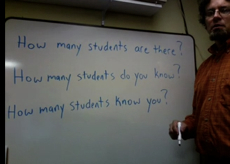 How many students are there?
How many students do you know?
How many students know you?